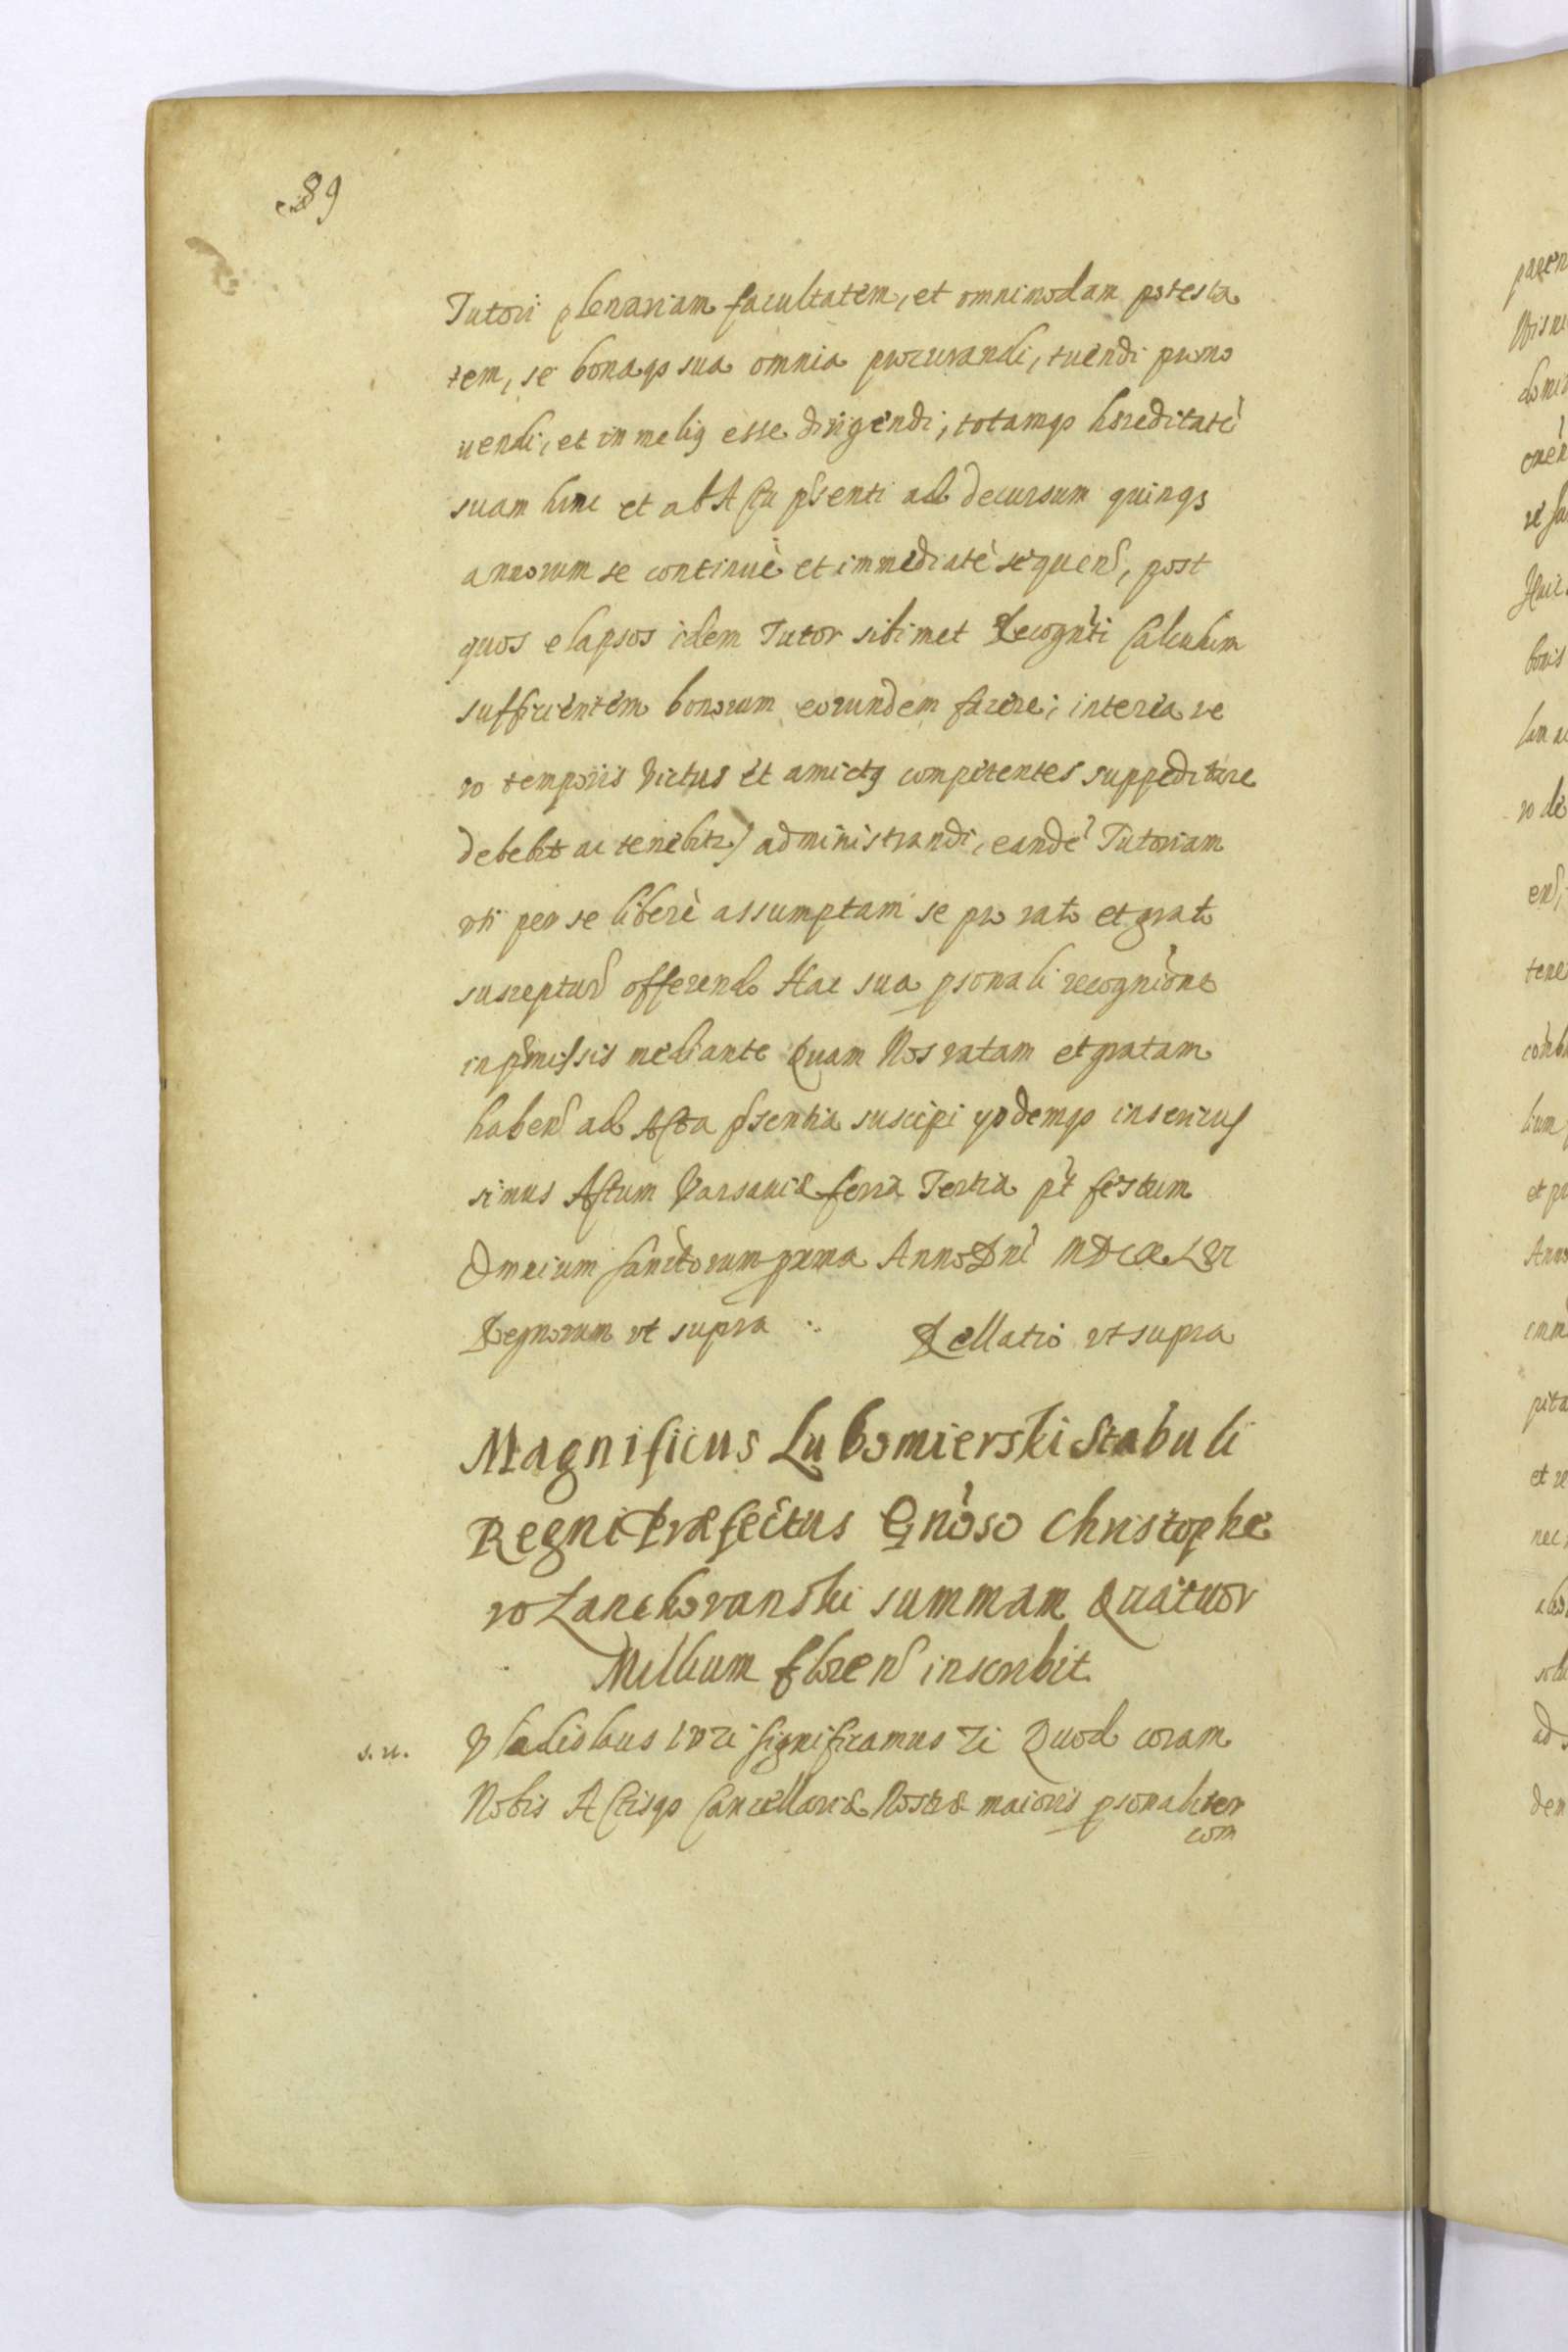 89
Tutori plenariam facultatem, et omnimodam potesta
tem, se bonaqz sua omnia procurandi, tuendi promo
uendi, et in meli9 esse dirigendi, totamqz hæreditatē
suam hinc et ab Actu pñsenti ad decursum quinqz
annorum se continuè et immediatè sequen, post
quos elapsos idem Tutor sibimet Recogñti Calculum
sufficientem bonorum eorundem facere; interea ve
ro temporis Victus et amict9 competentes suppeditare
debebit ac tenebitr) administrandi, eandē Tutoriam
vti per se liberè assumptam se pro rato et grato
suscepturū offerendo Hac sua psonali recognione
in pmissis mediante Quam Nos ratam et gratam
haben ad Acta psentia suscipi ysdemqz inseri ius
simus Actum Varsauiæ feria Tertia pt festum
Omnium Sanctorum prima Anno Dni
Regnorum vt supra Rellatio vt supra
Magnificus Lubomierski Stabuli
Regni Præfectus Gnoso Christophe
ro Lanckoranski summam Quatuor
Millium floren inscribit
s. n. Vladislaus IV ƶc significamus ƶc Quod coram
Nobis Actisqz Cancellariæ Nostræ maioris psonaliter
com